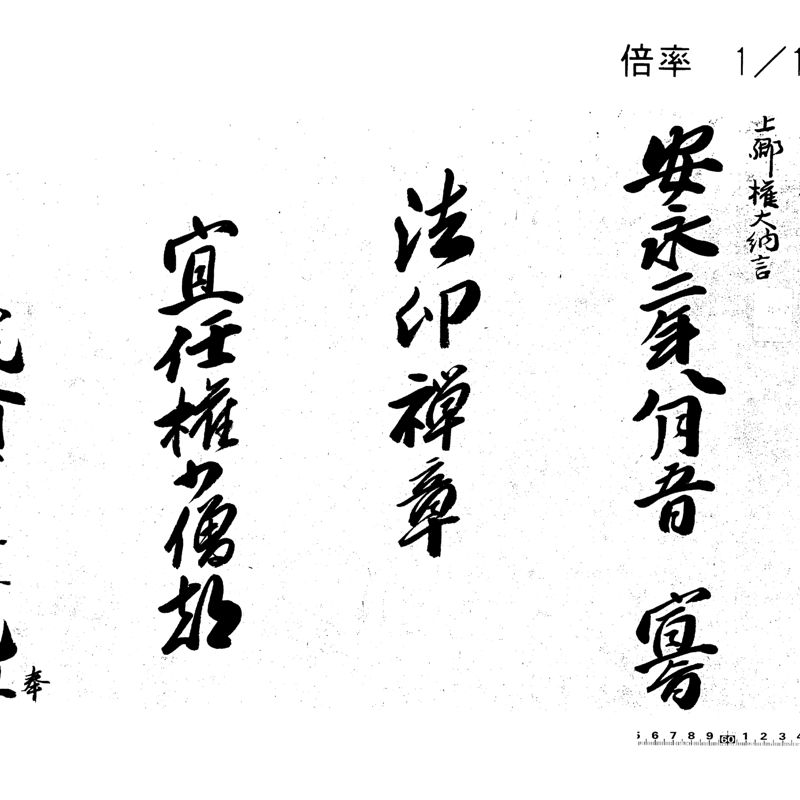 倍率 1/1
上卿 權大納言
安永二年八月五日 宣旨
法印禅章
宜任權少僧都
奉
6 7 8 9 60 1 2 3 4